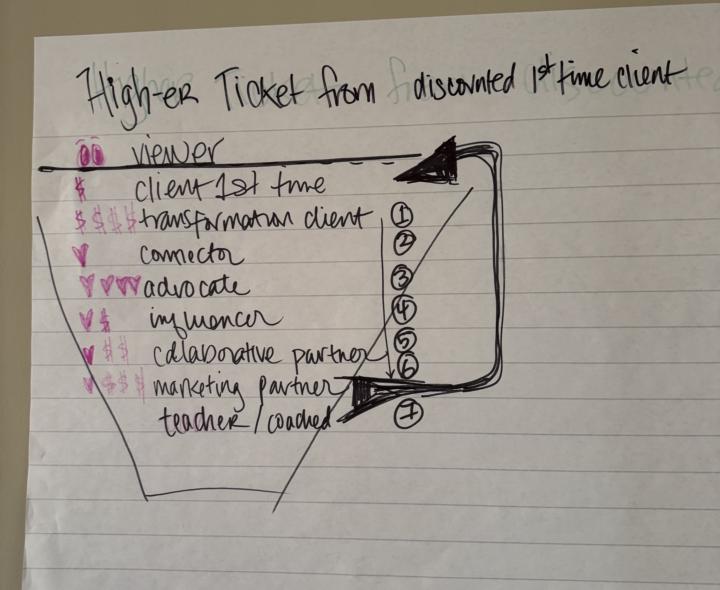 High-er Ticket from discounted 1st time client
viewer
$ client 1st time
$$$$ transformation client ①
connector ②
advocate ③
influencer ④
$ collaborative partner ⑤
⑥
$$$ marketing partner
teacher/coached ⑦